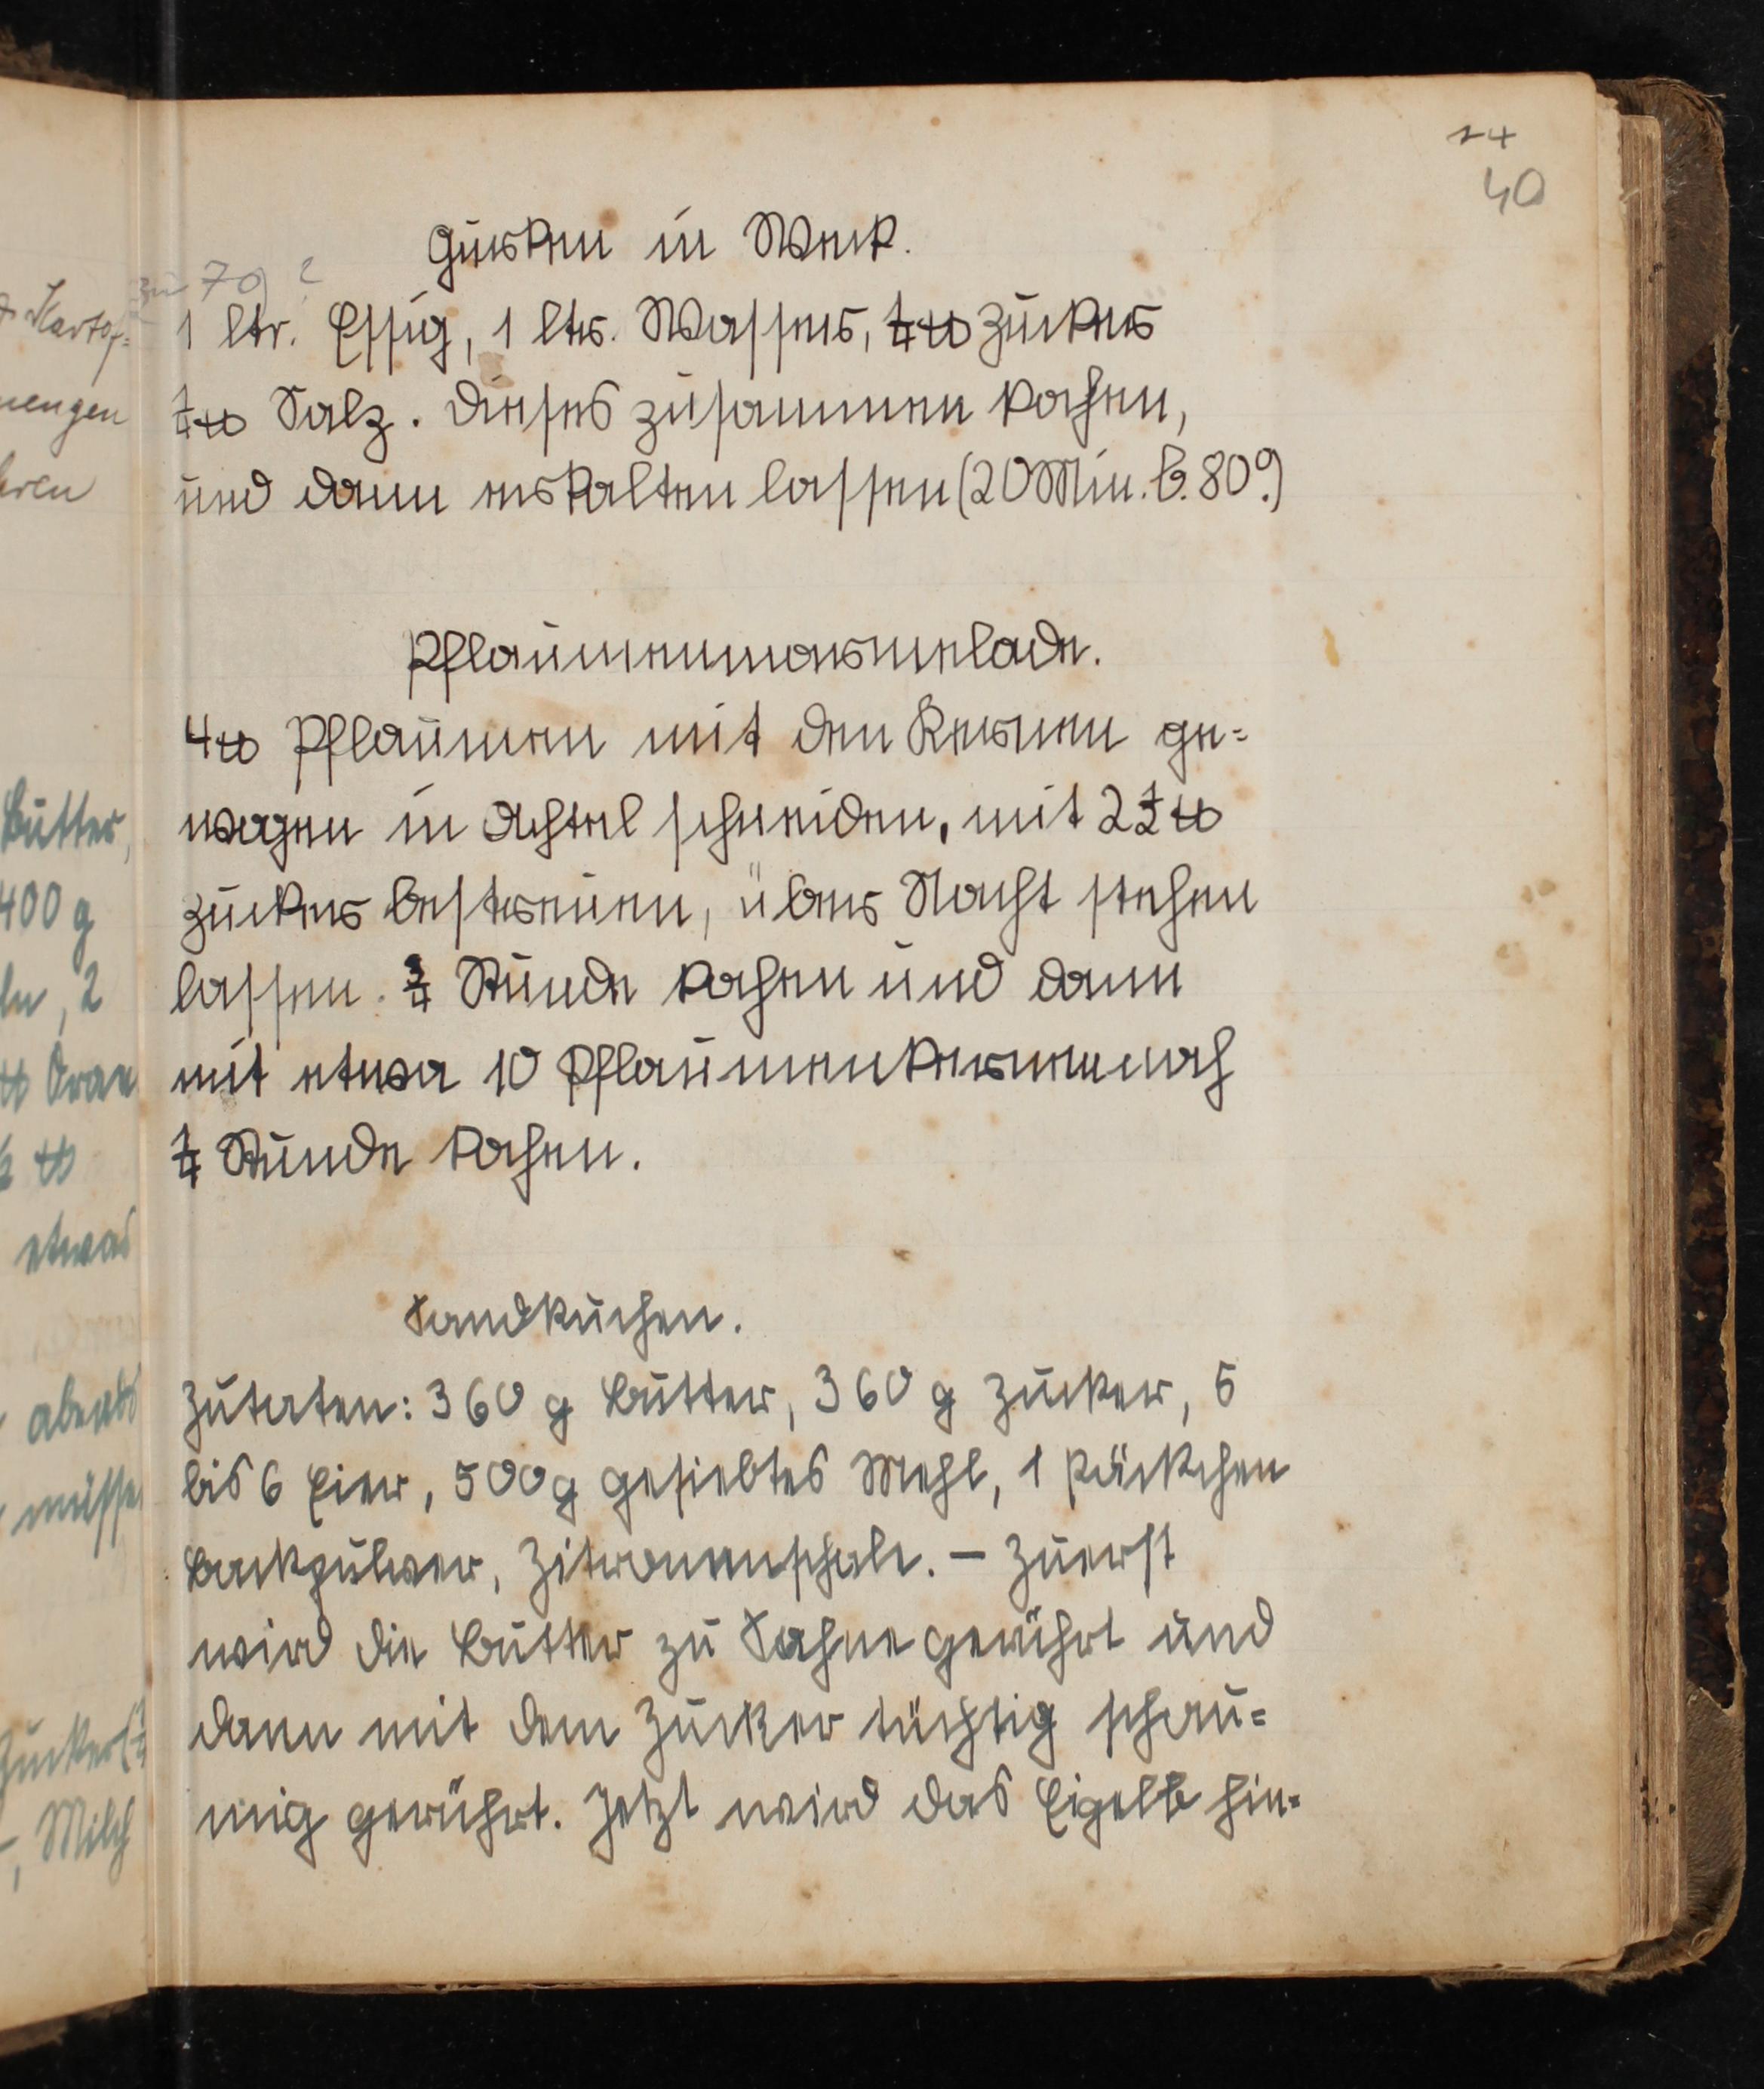 14
40
Gurken in Weck.
zu 70 ?
1 ltr. Essig, 1 ltr. Wasser, ¼ ℔ Zucker
¼ ℔ Salz. Dieses zusammen kochen,
und dann erkalten lassen (20 Min. b. 80°.)
Pflaumenmarmelade.
4 ℔ Pflaumen mit den Kernen ge=
wogen in Achtel schneiden, mit 2½ ℔
Zucker bestreuen, über Nacht stehen
lassen. ¾ Stunde kochen und dann
mit etwa 10 Pflaumenkernen noch
¼ Stunde kochen.
Sandkuchen.
Zutaten: 360 g Butter, 360 g Zucker, 5
bis 6 Eier, 500 g gesiebtes Mehl, 1 Päckchen
Backpulver, Zitronenschale. – Zuerst
wird die Butter zu Sahne gerührt und
dann mit dem Zucker tüchtig schau=
mig gerührt. Jetzt wird das Eigelb hin=
Kartof=
mengen
Butter,
400 g
ln, 2
℔ Oran
℔
etwas
abends
müsse
Zucker
, Milch